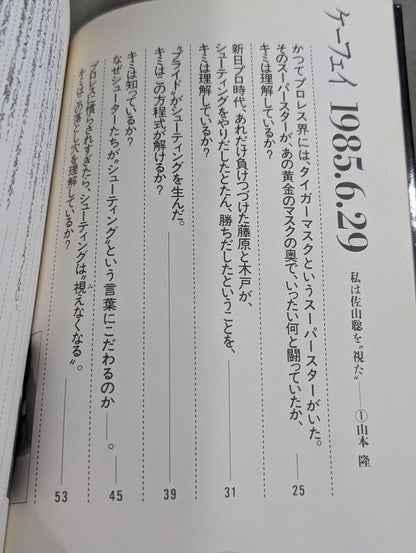 ケーフェイ 1985.6.29
私は佐山聡を〝視た〟——①山本 隆
かつてプロレス界には、タイガーマスクというスーパースターがいた。
そのスーパースターが、あの黄金のマスクの奥で、いったい何と闘っていたか、
キミは理解しているか?
25
新日プロ時代、あれだけ負けつづけた藤原と木戸が、
シューティングをやりだしたとたん、勝ちだしたということを、
キミは理解しているか?
31
〝プライド〟がシューティングを生んだ。
キミはこの方程式が解けるか?
39
キミは知っているか?
なぜシューターたちが〝シューティング〟という言葉にこだわるのか——。
45
プロレスに慣らされすぎたら、シューティングは〝視えなくなる〟。
み
キミはこの落とし穴を理解しているか?
53